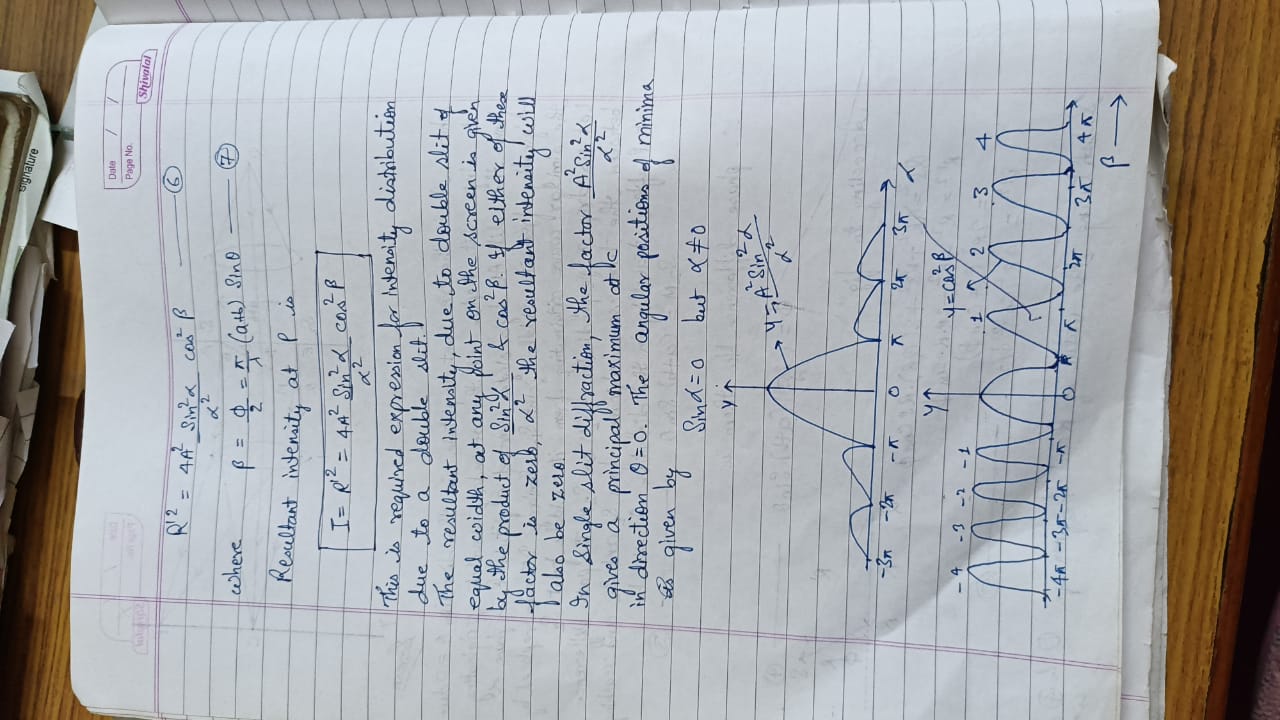 Signature
Date / /
Page No.
Shivalal
R'² = 4A² Sin²α/α² cos²β —— ⑥
where β = ϕ/2 = π/λ (a+b) Sinθ —— ⑦
Resultant intensity at P is
I = R'² = 4A² Sin²α/α² cos²β
This is required expression for intensity distribution
due to a double slit.
The resultant intensity, due to double slit of
equal width, at any point on the screen is given
by the product of Sin²α/α² & cos²β. If either of these
factor is zero, the resultant intensity will
also be zero.
In Single slit diffraction, the factor A² Sin²α/α²
gives a principal maximum at
in direction θ = 0. The angular positions of minima
given by
Sinα = 0 but α ≠ 0
Y
Y = A² Sin²α/α²
-3π -2π -π 0 π 2π 3π α
Y
y = cos²β
-4 -3 -2 -1 1 2 3 4
-4π -3π -2π -π 0 π 2π 3π 4π
β →